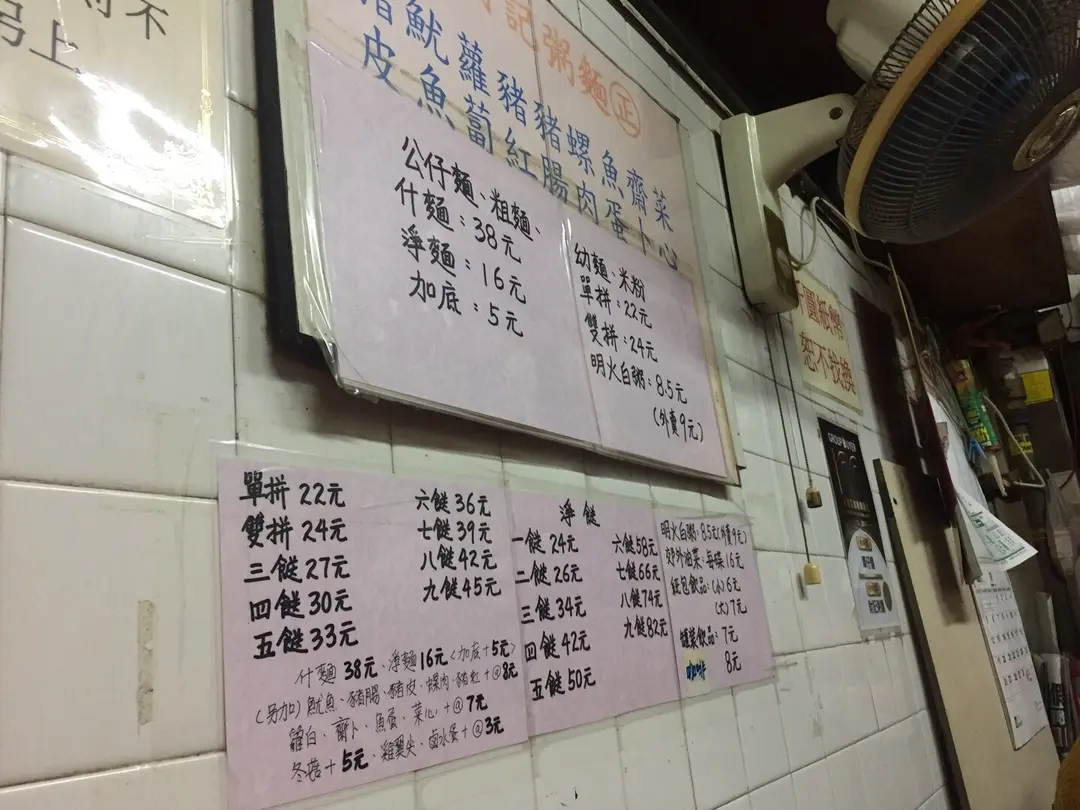 不
弓上
記粥麵 正
豬魷蘿豬豬螺魚齋菜
皮魚蔔紅腸肉蛋卜心
公仔麵、粗麵、
什麵：38元
淨麵：16元
加底：5元
幼麵、米粉
單拼：22元
雙拼：24元
明火白粥：8.5元
(外賣9元)
千圓紙幣
恕不找換
GROUP BUYER
單拼 22元
雙拼 24元
三餸27元
四餸30元
五餸33元
六餸36元
七餸39元
八餸42元
九餸45元
什麵 38元、淨麵16元〈加底+5元〉
(另加) 魷魚、豬腸、豬皮、螺肉、豬紅+@8元
蘿白、齋卜、魚蛋、菜心+@7元
冬菇+5元、雞翼尖、鹵水蛋+@3元
淨餸
一餸 24元
二餸 26元
三餸 34元
四餸 42元
五餸 50元
六餸58元
七餸66元
八餸74元
九餸82元
明火白粥：8.5元(外賣9元)
郊外油菜：每碟16元
紙包飲品：(小)6元
(大)7元
罐裝飲品：7元
8元